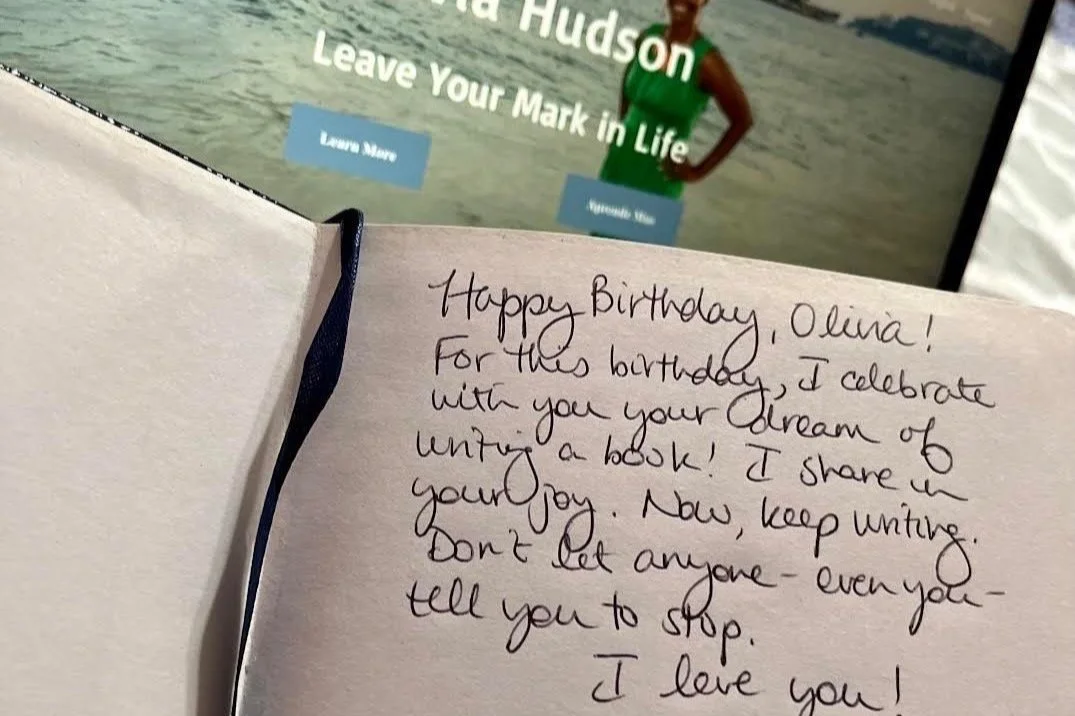 Hudson
Leave Your Mark in Life
Learn More
Aprende Mas
Happy Birthday, Olivia!
For this birthday, I celebrate
with you your dream of
writing a book! I share in
your joy. Now, keep writing.
Don't let anyone - even you -
tell you to stop.
I love you!